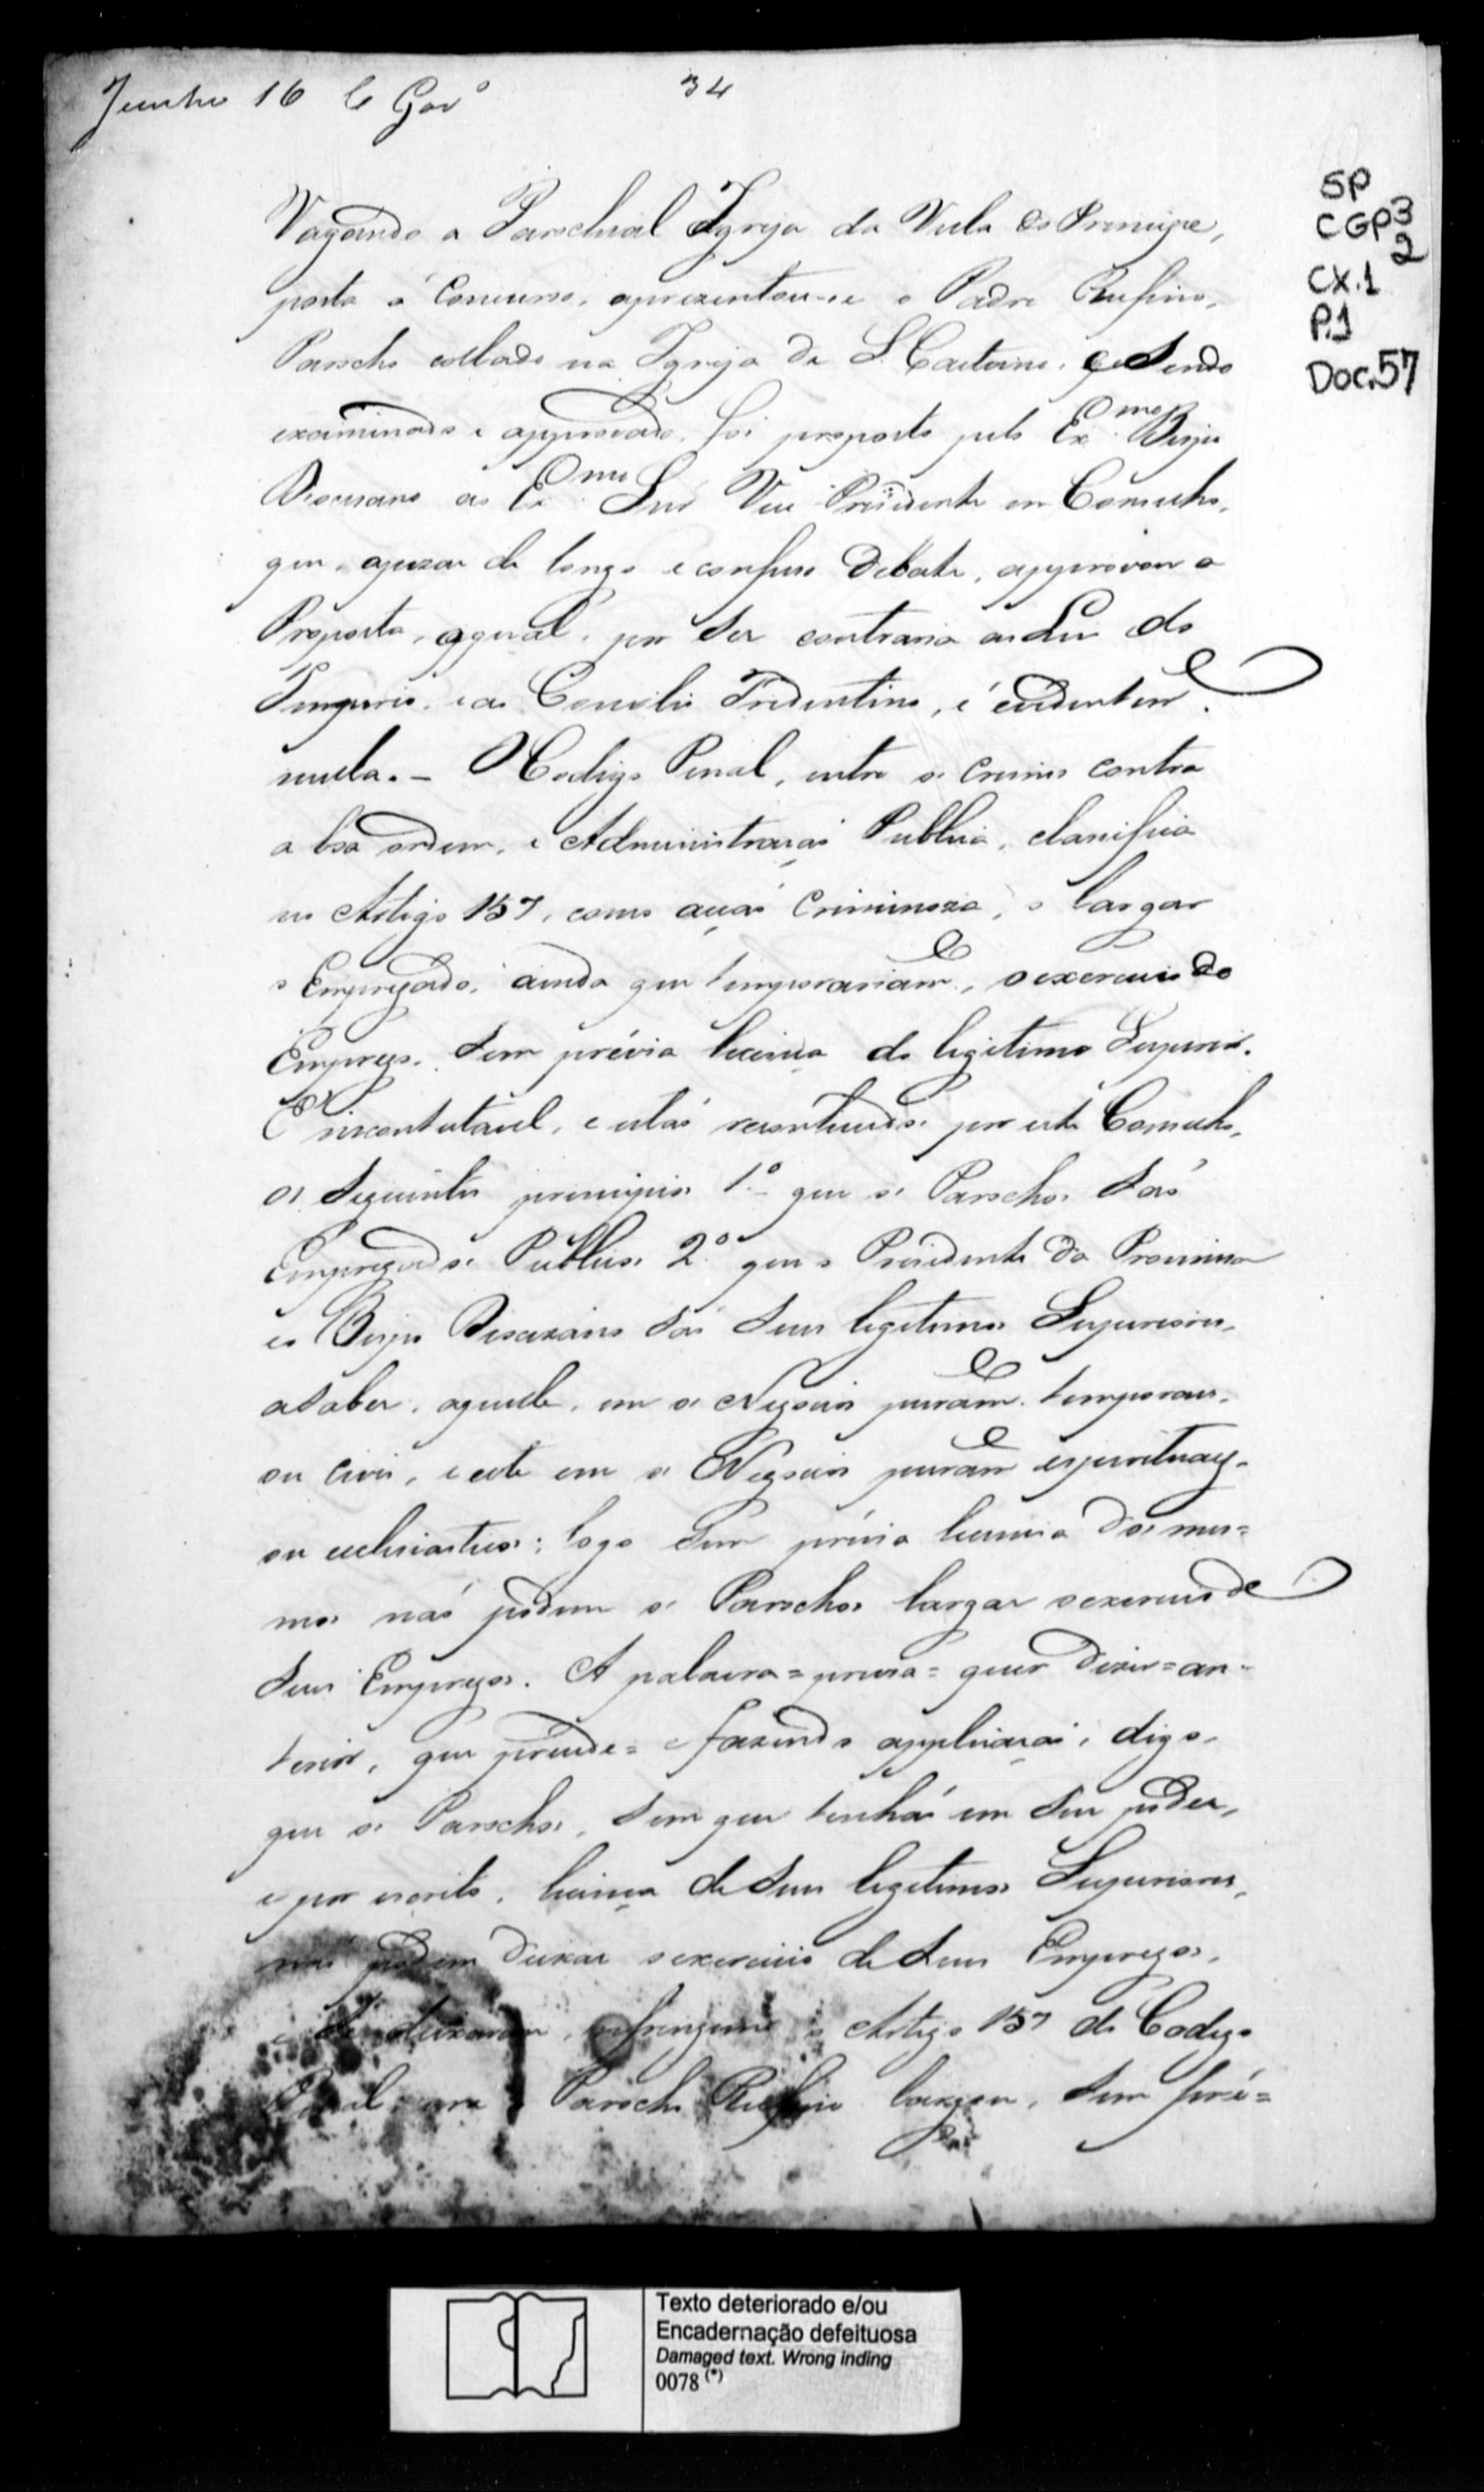 Junho 16 C Govº
34
SP
CGP3
2
CX.1
P.1
Doc.57
Vagando a Parochial Igreja da Villa do Principe,
posta á Concurso, aprezentou-se o Padre Rufino,
Parocho collado na Igreja de S. Caetano, q̃ Sendo
examinado e approvado, foi proposto pelo Exmo Bispo
Diocesano ao Exmo Snr Vice Prezidente em Conselho,
que, apezar de longo e confuso debate, approvou a
Proposta, aqual, por Ser contraria as Leis do
Imperio, e ao Concilio Tridentino, é evidentemte
nulla. – O Codigo Penal, entre os crimes contra
a boa ordem, e Administraçaõ Publica, classifica
no Artigo 157, como acçaõ Criminoza, o largar
o Empregado, ainda que temporariame, o exercicio do
Emprego, Sem prévia licença do legitimo Superior.
E' incontestavel, e estaõ reconhecidos por este Conselho,
os Seguintes principios 1º que os Parochos Saõ
Empregados Publicos 2º que o Prezidente da Provincia
e o Bispo Diocezano Saõ Seus legitimos Superiores,
aSaber, aquelle, em os Negocios purame temporaes,
ou civis, e este em os Negocios purame espirituaes,
ou ecclesiasticos; logo Sem prévia licença dos mes=
mos naõ podem os Parochos largar o exercicio de
Seus Empregos. A palavra = prévia = quer dizer = an-
terior, que precede = e fazendo applicaçaõ, digo,
que os Parochos, Sem que tenhaõ em Seu poder,
e por escrito, licença de Seus legitimos Superiores,
naõ podem deixar o exercicio de Seus Empregos,
e Se o deixarem, infringem o Artigo 157 do Codigo
Penal: ora o Parocho Rufino largou, Sem pré=
Texto deteriorado e/ou
Encadernação defeituosa
Damaged text. Wrong inding
0078 (*)